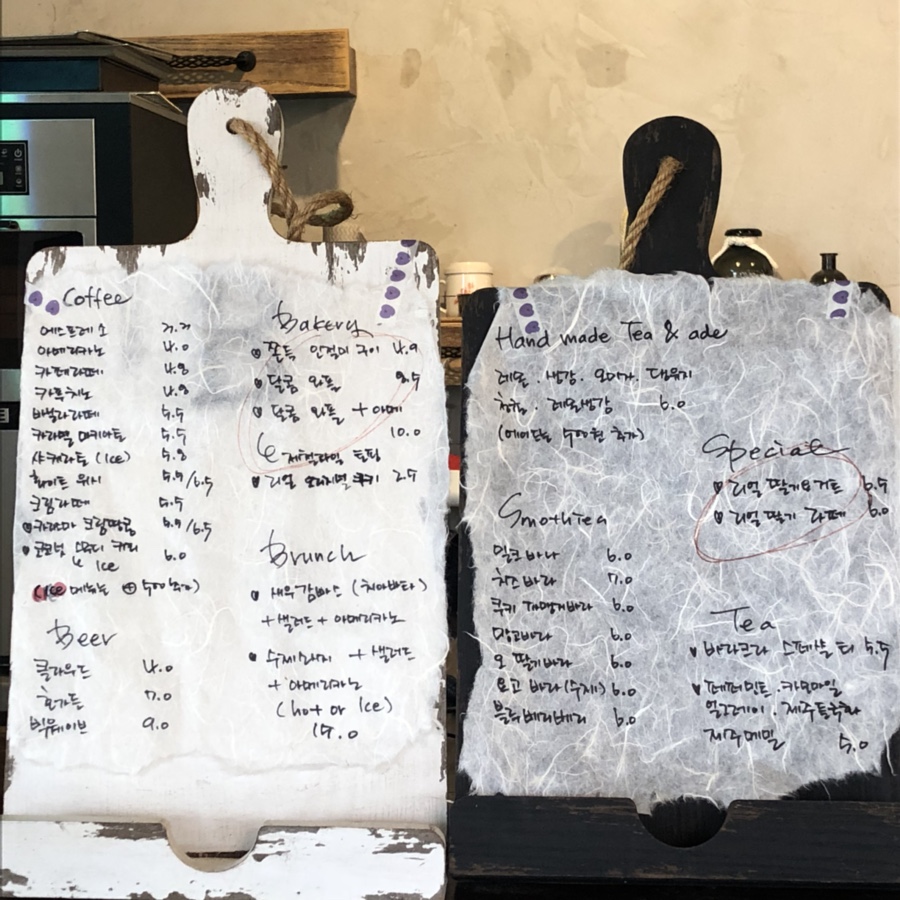 Coffee
에스프레소 3.3
아메리카노 4.0
카페라떼 4.8
카푸치노 4.8
바닐라라떼 5.5
카라멜 마키아토 5.5
샤케라토 (Ice) 5.8
화이트 위시 5.9/6.5
크림라떼 5.5
카라마 크림땅콩 5.9/6.5
코코넛 스무디 커피 6.0
Ice
(Ice 메뉴는 + 500 추가)
Beer
클라우드 4.0
호가든 7.0
빅웨이브 9.0
Bakery
쫀득 인절미 구이 4.9
달콤 와플 8.5
달콤 와플 + 아메
10.0
제철과일 토핑
리얼 오리지널 쿠키 2.5
Brunch
새우감바스 (치아바타)
+ 샐러드 + 아메리카노
수제 + 샐러드
+ 아메리카노
(hot or Ice)
15.0
Hand made Tea & ade
레몬 . 생강 . 오미자 . 대추
청귤 . 레몬생강 6.0
(에이드는 500원 추가)
Smothtea
밀크 바나 6.0
치즈 바라 7.0
쿠키 바라 6.0
망고바라 6.0
오 딸기바라 6.0
요고 바라(수제) 6.0
블루베리베리 6.0
Special
리얼 딸기요거트 6.5
리얼 딸기 라떼 6.0
Tea
바라크라 스페셜 티 5.5
페퍼민트 . 카모마일
얼그레이 . 제주동국화
제주메밀 5.0